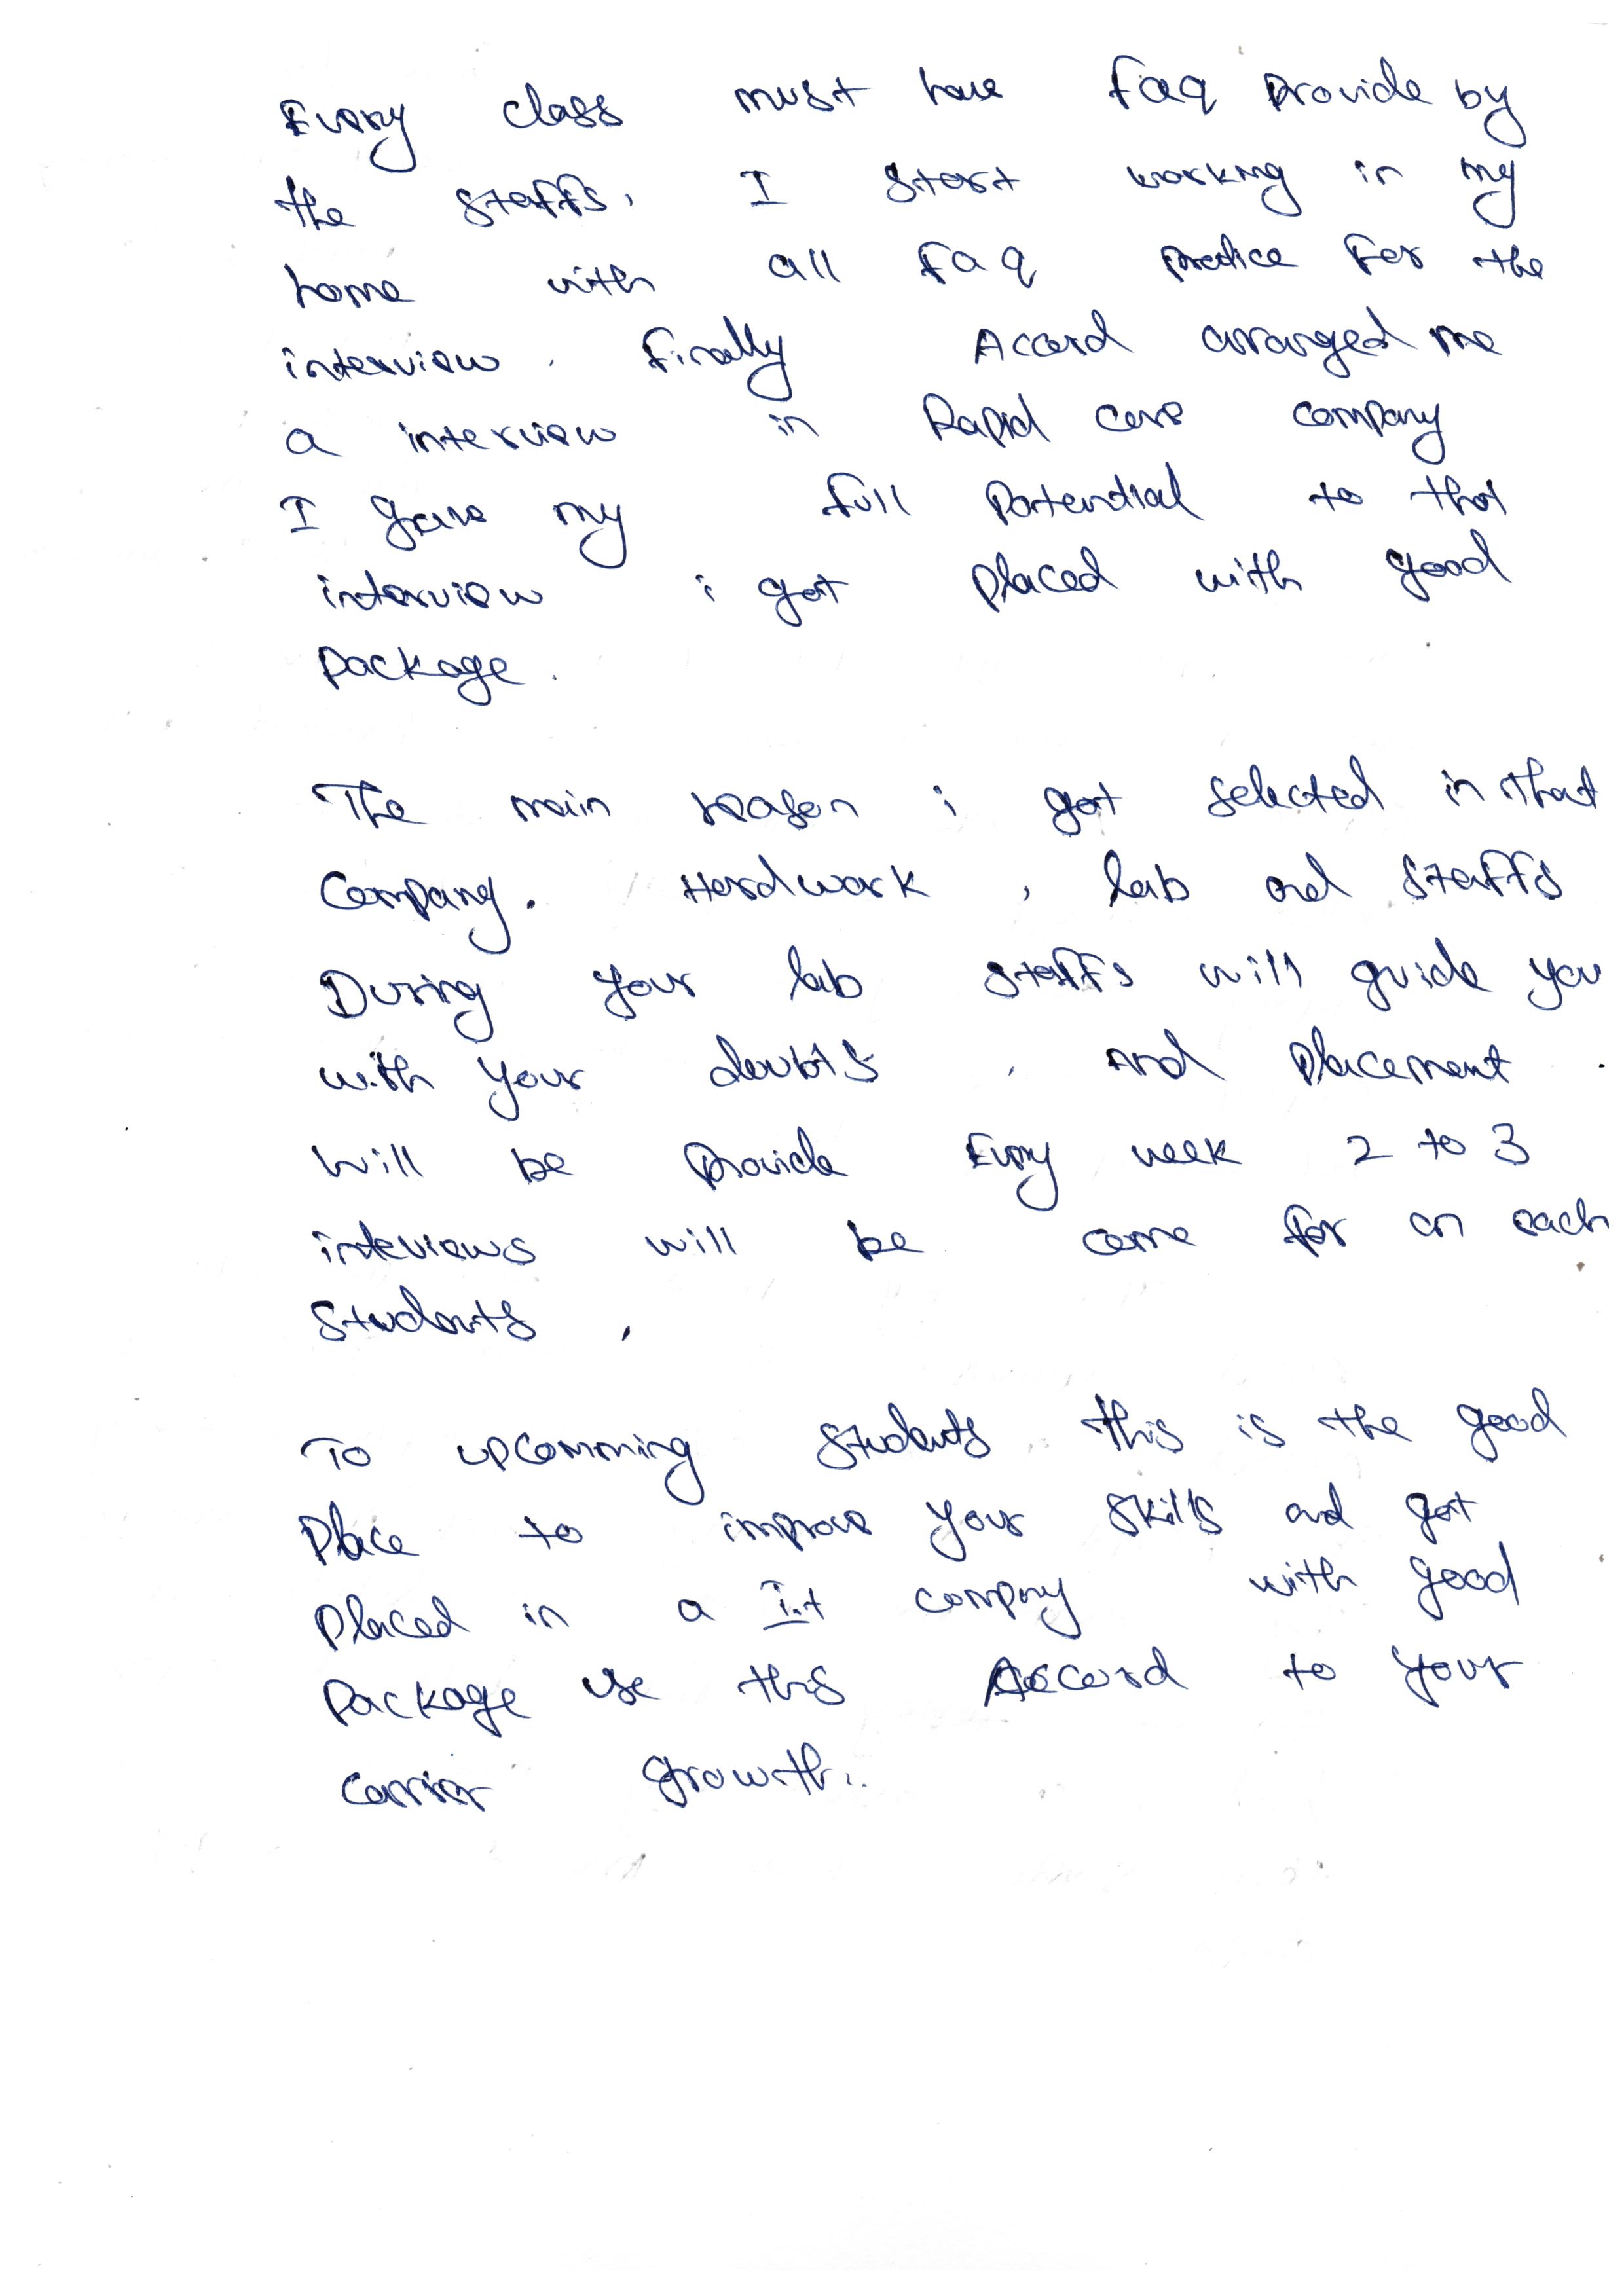 Every class must have faq provide by
the staffs, I start working in my
home with all faq practice for the
interview. Finally Accord arranged me
a interview in Rapid care company
I gave my full potential to that
interview i got placed with good
package.
The main reason i got selected in that
Company. Hardwork, lab and staffs
During your lab staffs will guide you
with your doubts, and placement
will be provide Every week 2 to 3
inteviews will be come for an each
students,
To upcomming students this is the good
place to improve your skills and get
placed in a I.t company with good
package use this Accord to your
carrier growth..